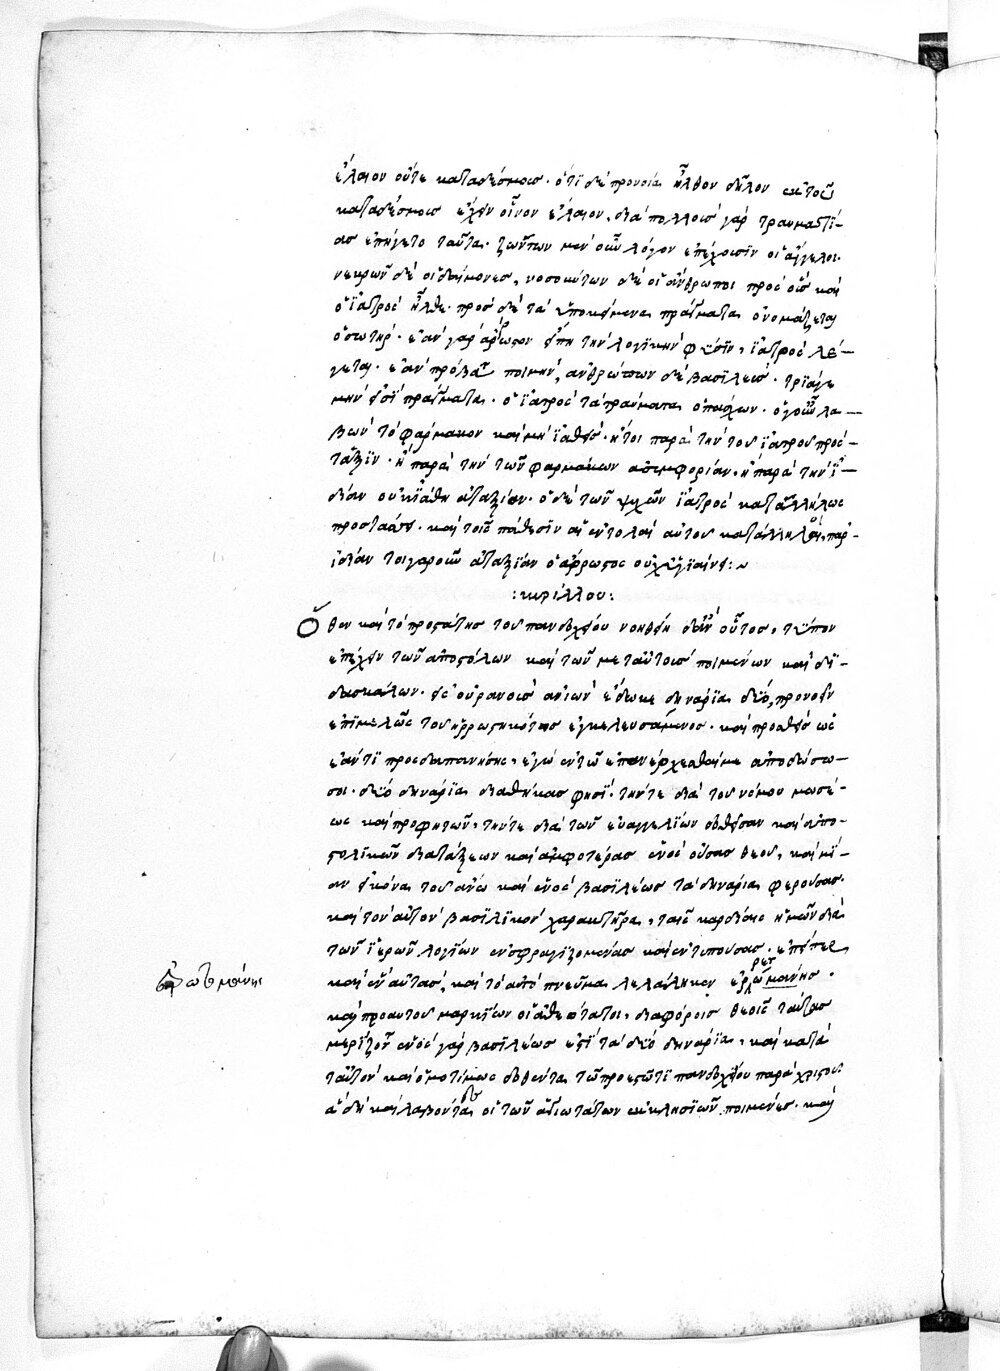 ἔλαιον οὔτε καταδέσμοις· ὅτι δὲ προνοία ἦλθον δῆλον ἐκ τοῦ
καταδέσμοις ἔχειν οἶνον ἔλαιον, διὰ πολλοῖς γὰρ τραυματί-
ας ἐπήγετο ταῦτα· ζώντων μὲν οὖν λόγον ἐπέχουσιν οἱ ἄγγελοι·
νεκρῶν δὲ οἱ δαίμονες, νοσούντων δὲ οἱ ἄνθρωποι πρὸς οὓς καὶ
ὁ ἰατρὸς ἦλθε· πρὸς δὲ τὰ ὑποκείμενα πράγματα ὀνομάζεται
ὁ σωτήρ· ἐὰν γὰρ ἄρρωστον εἴπη τὴν λογικὴν φύσιν, ἰατρὸς λέ-
γεται· ἐὰν πρόβατα ποιμήν, ἀνθρώπων δὲ βασιλεύς· τρία γε
μὴν εἰσὶ πράγματα· ὁ ἰατρὸς τὰ τραύματα ὁ πάσχων· ὁ γοῦν λα-
βὼν τὸ φάρμακον καὶ μὴ ἰαθεὶς· ἤτοι παρὰ τὴν τοῦ ἰατροῦ πρόσ-
ταξιν· ἢ παρὰ τὴν τῶν φαρμάκων ἀσυμφορίαν, ἢ παρὰ τὴν ἰ-
δίαν οὐκ ἰάθη ἀταξίαν· ὁ δὲ τῶν ψυχῶν ἰατρὸς καταλλήλως
προστάσσει· καὶ τοῖς πάθεσιν αἱ ἐντολαὶ αὐτοῦ κατάλληλοι, παρ'
ἰδίαν τοιγαροῦν ἀταξίαν ὁ ἄρρωστος οὐχ ὑγιαίνει:~
:κυρίλλου:
Ὅθεν καὶ τὸ προστάτης τοῦ πανδοχείου νοηθείη ἂν οὗτος, τύπον
ἐπέχειν τῶν ἀποστόλων καὶ τῶν μετ' αὐτοὺς ποιμένων καὶ δι-
δασκάλων· εἰς οὐρανοὺς ἀνιὼν ἔδωκε δηνάρια δύο, προνοεῖν
ἐπιμελῶς τοῦ ἠρρωστηκότος ἐγκελευσάμενος· καὶ προσθεὶς ὡς
ἐάν τι προσδαπανήσης, ἐγὼ ἐν τῶ ἐπανέρχεσθαί με ἀποδώσω
σοι· δύο δηνάρια διαθήκας φησί· τήν τε διὰ τοῦ νόμου μωσέ-
ως καὶ προφητῶν, τήν τε διὰ τῶν εὐαγγελίων δοθεῖσαν καὶ ἀπο-
στολικῶν διατάξεων καὶ ἀμφοτέρας ἑνὸς οὔσας θεοῦ, καὶ μί-
αν εἰκόνα τοῦ ἄνω καὶ ἑνὸς βασιλέως τὰ δηνάρια φερούσας·
καὶ τὸν αὐτὸν βασιλικὸν χαρακτῆρα, ταῖς καρδίαις ἡμῶν διὰ
τῶν ἱερῶν λογίων ἐνσφραγιζομένας καὶ ἐντυπούσας· ἐπείπερ
καὶ ἓν αὐτὰς, καὶ τὸ αὐτὸ πνεῦμα λελάληκεν
καὶ πρὸ αὐτοῦ μαρκίων οἱ ἀθεώτατοι, διαφόροις θεοῖς ταύτας
μερίζον ἑνὸς γὰρ βασιλέως ἐστὶ τὰ δύο δηνάρια, καὶ κατὰ
ταυτὸν καὶ ὁμοτίμως δοθέντα τῶ προεστῶτι πανδοχείου παρὰ χριστοῦ·
ἃ δὴ καὶ λαβόντες οἱ τῶν ἁγιωτάτων ἐκκλησιῶν ποιμένες· καὶ